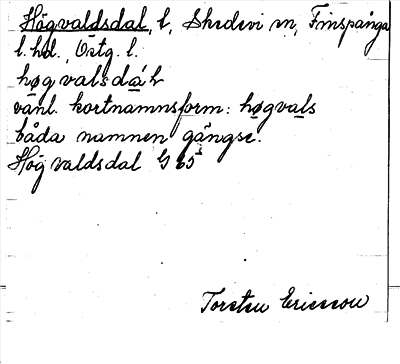 Högvaldsdal, l, Skedevi sn, Finspånga
l. hd., Östg. l.
høgvalsdáL
vanl. kortnamnsform: høgvals
båda namnen gängse.
Högvaldsdal G 65
Torsten Ericsson